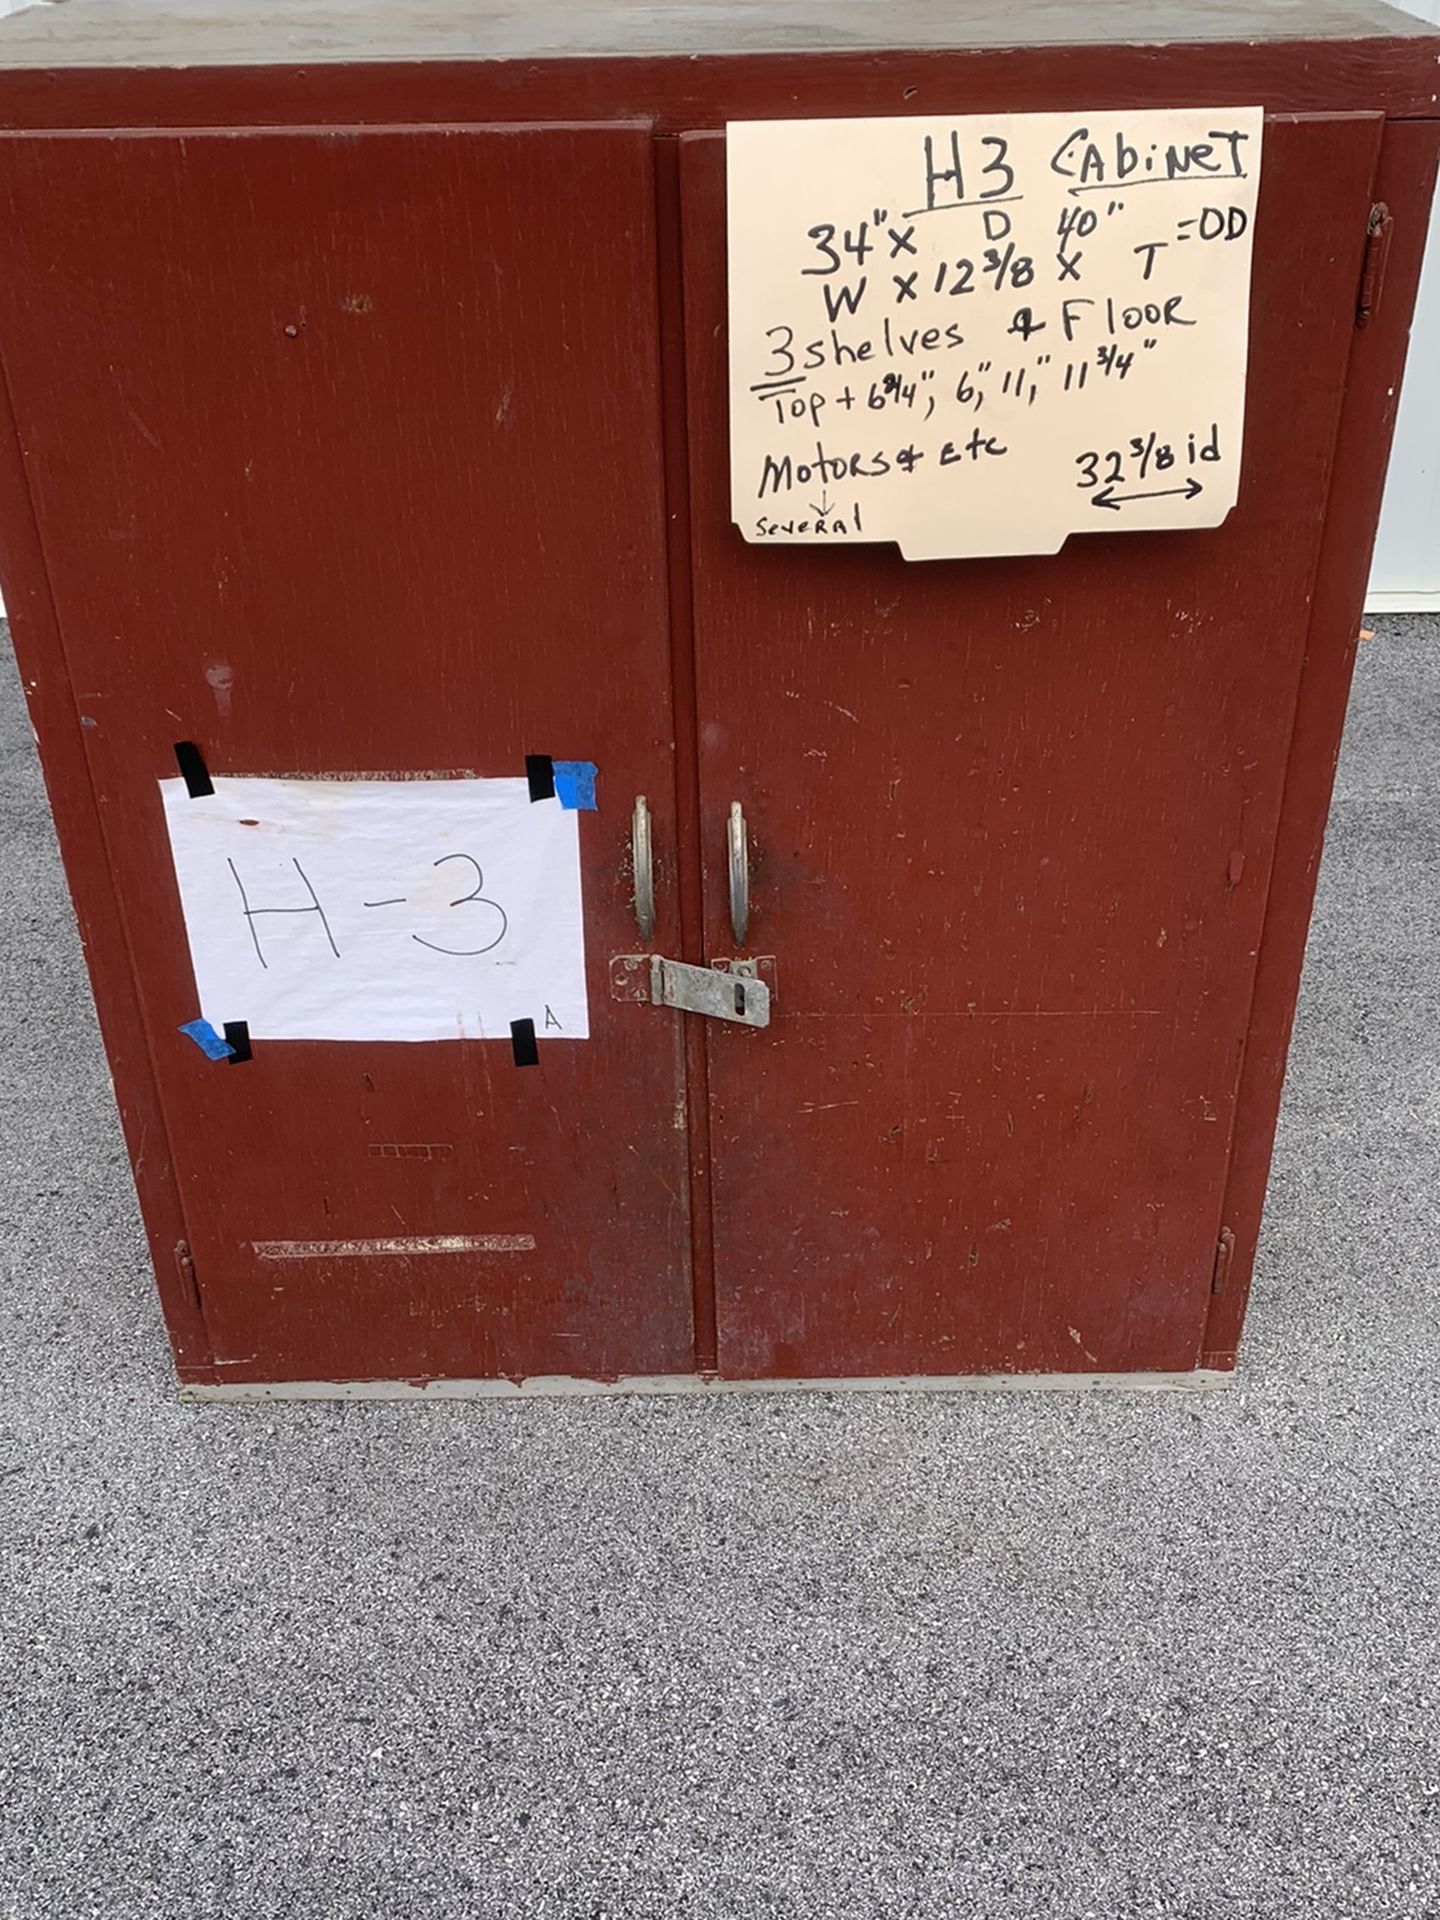 H3 CAbiNeT
34" X D 40" =OD
W X 12 3/8 X T
3 shelves & FlooR
Top + 6 3/4", 6", 11", 11 3/4"
MotoRs & Etc 32 3/8 id
SeveRAl
H-3
A